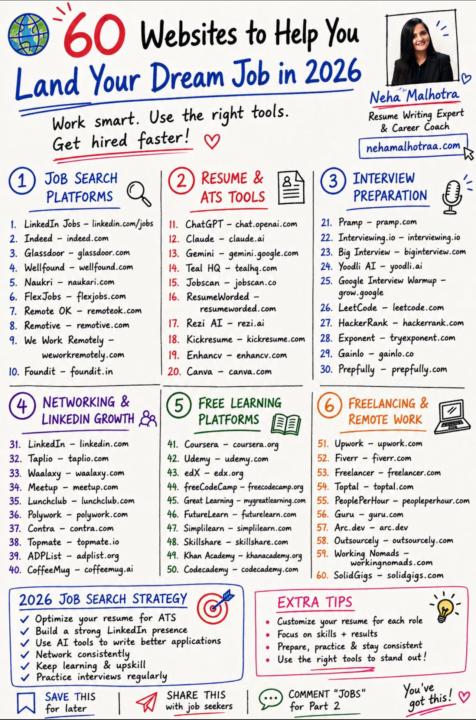 60 Websites to Help You
Land Your Dream Job in 2026
Work smart. Use the right tools.
Get hired faster!
Neha Malhotra
Resume Writing Expert
& Career Coach
nehamalhotraa.com
1 JOB SEARCH
PLATFORMS
1. LinkedIn Jobs – linkedin.com/jobs
2. Indeed – indeed.com
3. Glassdoor – glassdoor.com
4. Wellfound – wellfound.com
5. Naukri – naukari.com
6. FlexJobs – flexjobs.com
7. Remote OK – remoteok.com
8. Remotive – remotive.com
9. We Work Remotely –
weworkremotely.com
10. Foundit – foundit.in
2 RESUME &
ATS TOOLS
11. ChatGPT – chat.openai.com
12. Claude – claude.ai
13. Gemini – gemini.google.com
14. Teal HQ – tealhq.com
15. Jobscan – jobscan.co
16. ResumeWorded –
resumeworded.com
17. Rezi AI – rezi.ai
18. Kickresume – kickresume.com
19. Enhancv – enhancv.com
20. Canva – canva.com
3 INTERVIEW
PREPARATION
21. Pramp – pramp.com
22. Interviewing.io – interviewing.io
23. Big Interview – biginterview.com
24. Yoodli AI – yoodli.ai
25. Google Interview Warmup –
grow.google
26. LeetCode – leetcode.com
27. HackerRank – hackerrank.com
28. Exponent – tryexponent.com
29. Gainlo – gainlo.co
30. Prepfully – prepfully.com
4 NETWORKING &
LINKEDIN GROWTH
31. LinkedIn – linkedin.com
32. Taplio – taplio.com
33. Waalaxy – waalaxy.com
34. Meetup – meetup.com
35. Lunchclub – lunchclub.com
36. Polywork – polywork.com
37. Contra – contra.com
38. Topmate – topmate.io
39. ADPList – adplist.org
40. CoffeeMug – coffeemug.ai
5 FREE LEARNING
PLATFORMS
41. Coursera – coursera.org
42. Udemy – udemy.com
43. edX – edx.org
44. freeCodeCamp – freecodecamp.org
45. Great Learning – mygreatlearning.com
46. FutureLearn – futurelearn.com
47. Simplilearn – simplilearn.com
48. Skillshare – skillshare.com
49. Khan Academy – khanacademy.org
50. Codecademy – codecademy.com
6 FREELANCING &
REMOTE WORK
51. Upwork – upwork.com
52. Fiverr – fiverr.com
53. Freelancer – freelancer.com
54. Toptal – toptal.com
55. PeoplePerHour – peopleperhour.com
56. Guru – guru.com
57. Arc.dev – arc.dev
58. Outsourcely – outsourcely.com
59. Working Nomads –
workingnomads.com
60. SolidGigs – solidgigs.com
2026 JOB SEARCH STRATEGY
✓ Optimize your resume for ATS
✓ Build a strong LinkedIn presence
✓ Use AI tools to write better applications
✓ Network consistently
✓ Keep learning & upskill
✓ Practice interviews regularly
EXTRA TIPS
• Customize your resume for each role
• Focus on skills + results
• Prepare, practice & stay consistent
• Use the right tools to stand out!
SAVE THIS
for later
SHARE THIS
with job seekers
COMMENT "JOBS"
for Part 2
You've
got this!